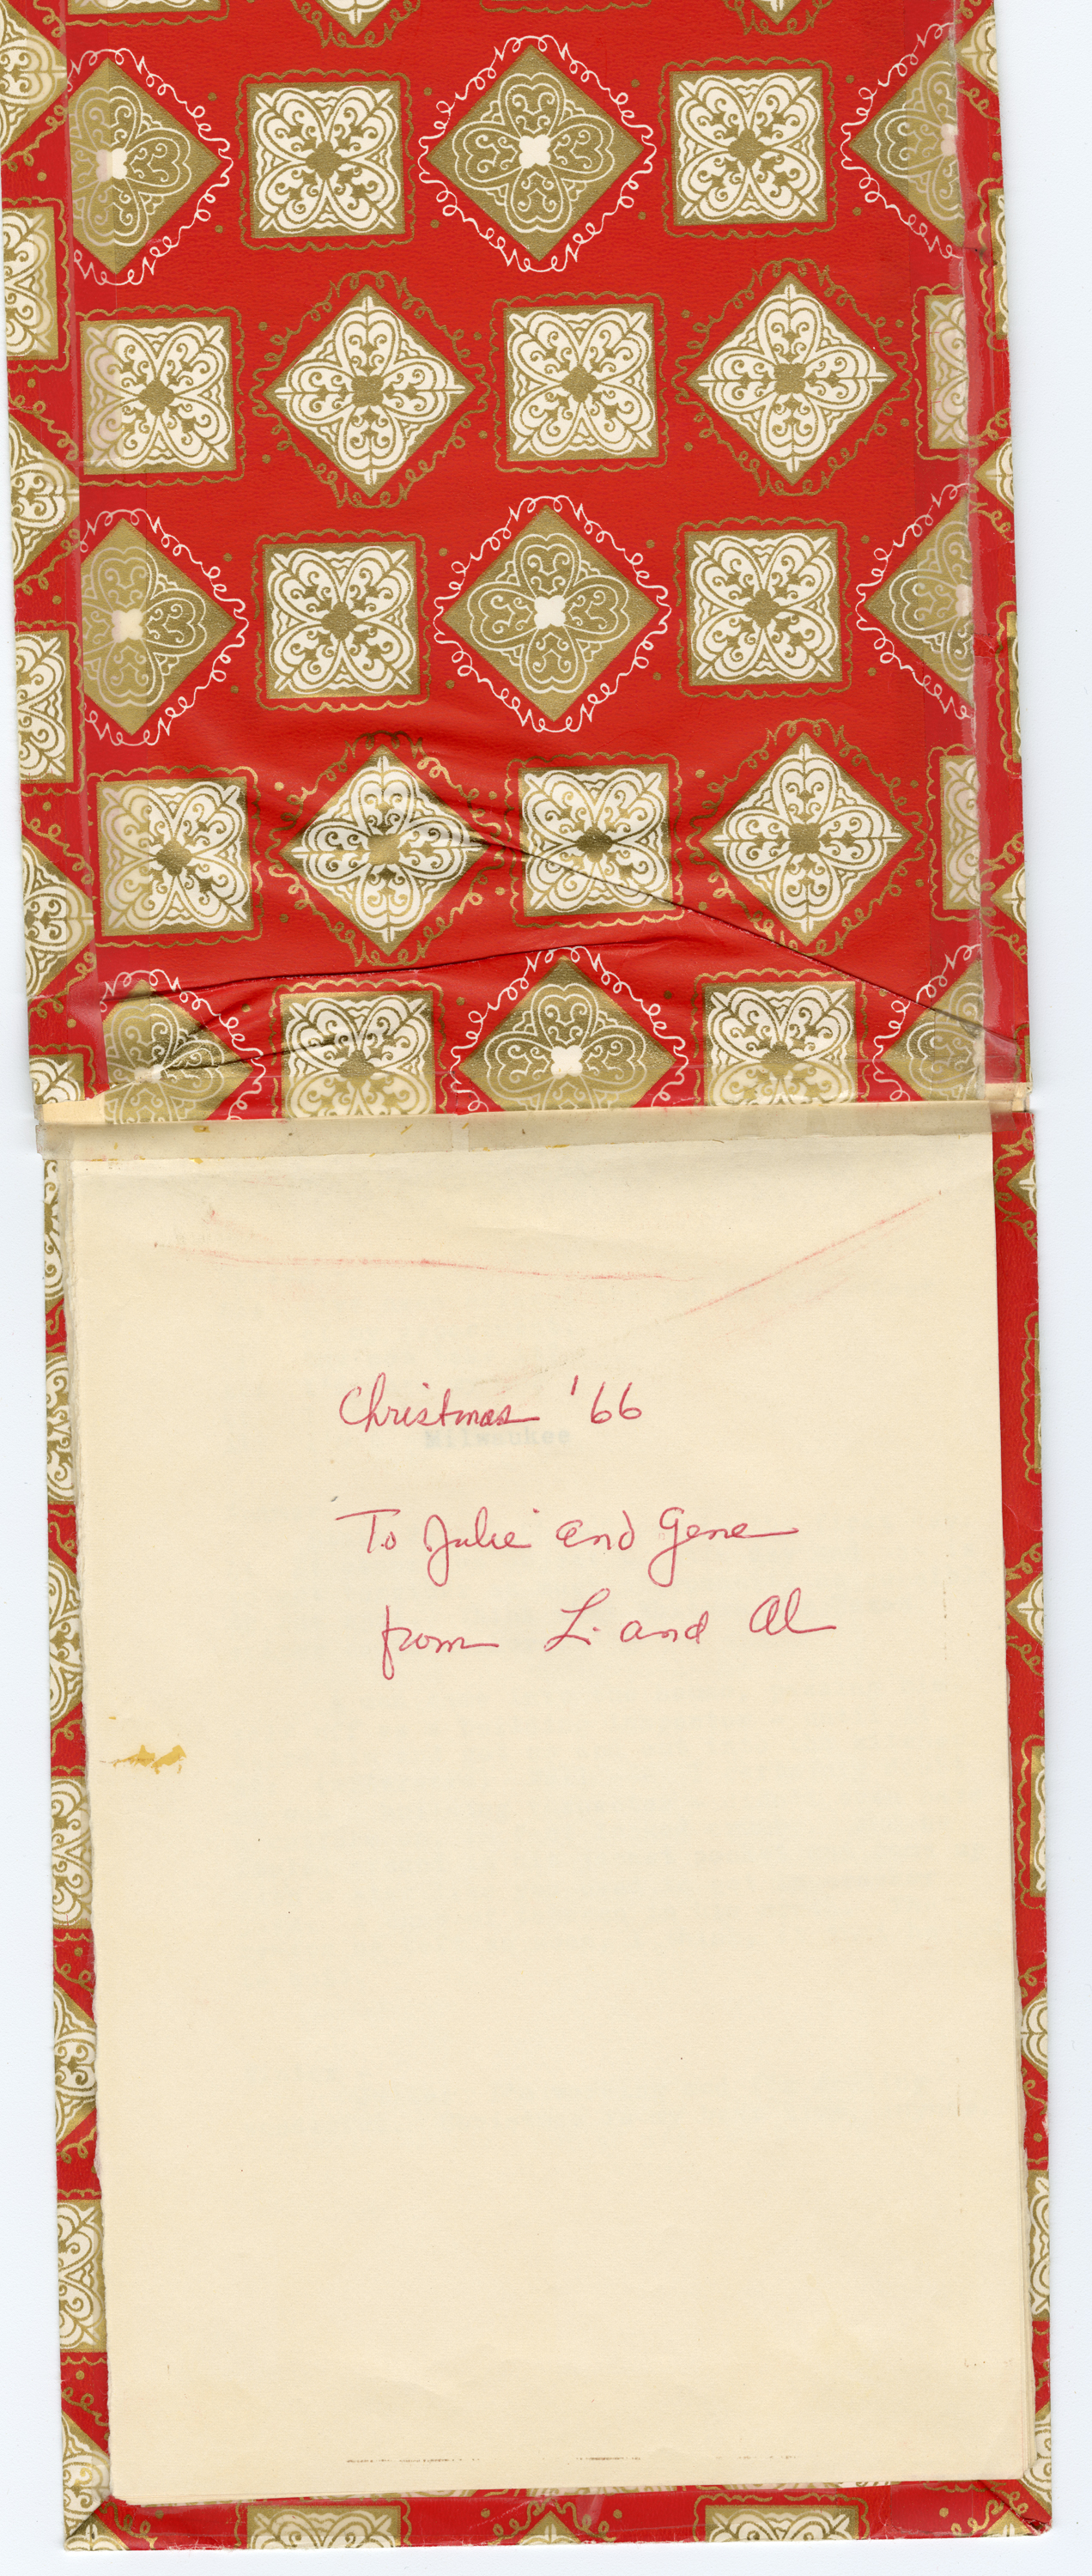 Christmas '66
Milwaukee
To Julie and Gene
from L. and Al